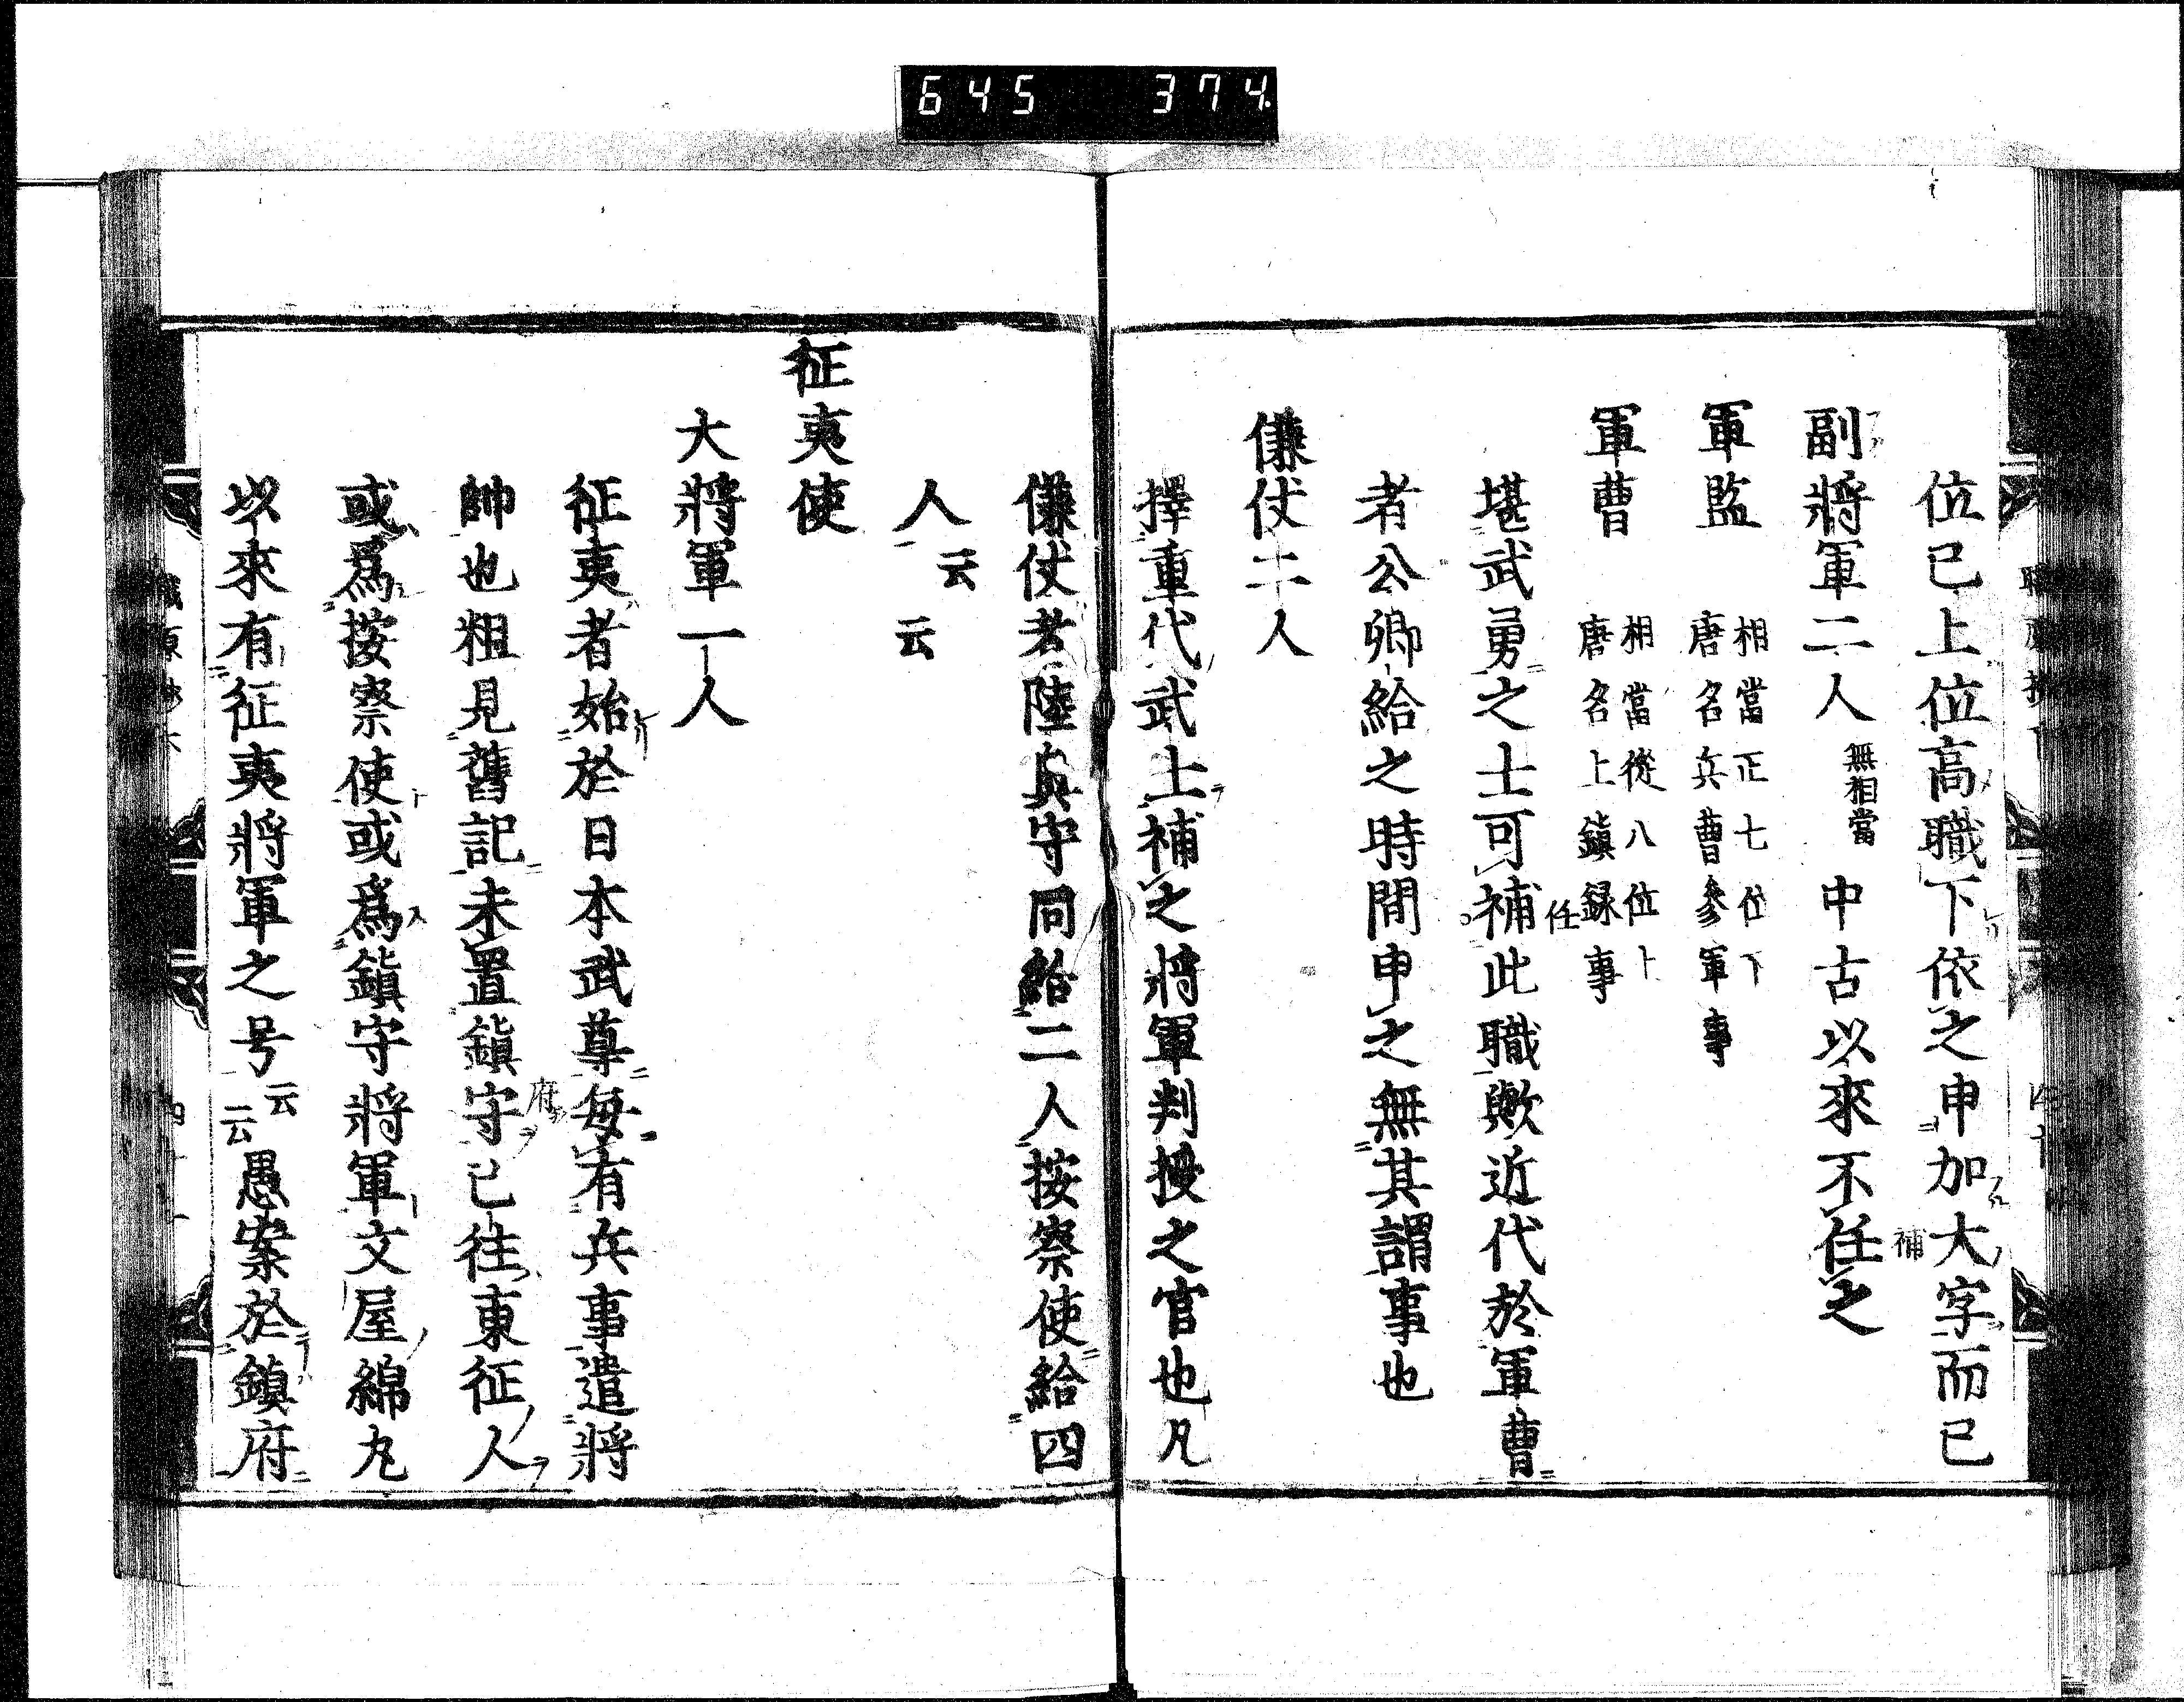 645 374
位已上位高職下依之申加大字而已
副將軍二人 無相當 中古以來不任之
補
軍監 相當正七位下
唐名兵曹參軍事
軍曹 相當從八位上
唐名上鎮録事
堪武勇之士可補此職歟近代於軍曹
任
者公卿給之時間申之無其謂事也
傔仗二人
擇重代武士補之將軍判授之官也凡
傔仗者陸奥守同給二人按察使給四
人云云
征夷使
大將軍一人
征夷者始於日本武尊毎有兵事遣將
帥也粗見舊記未置鎮守已往東征人
府
或爲按察使或爲鎮守將軍文屋綿丸
以來有征夷將軍之号云云愚案於鎮府